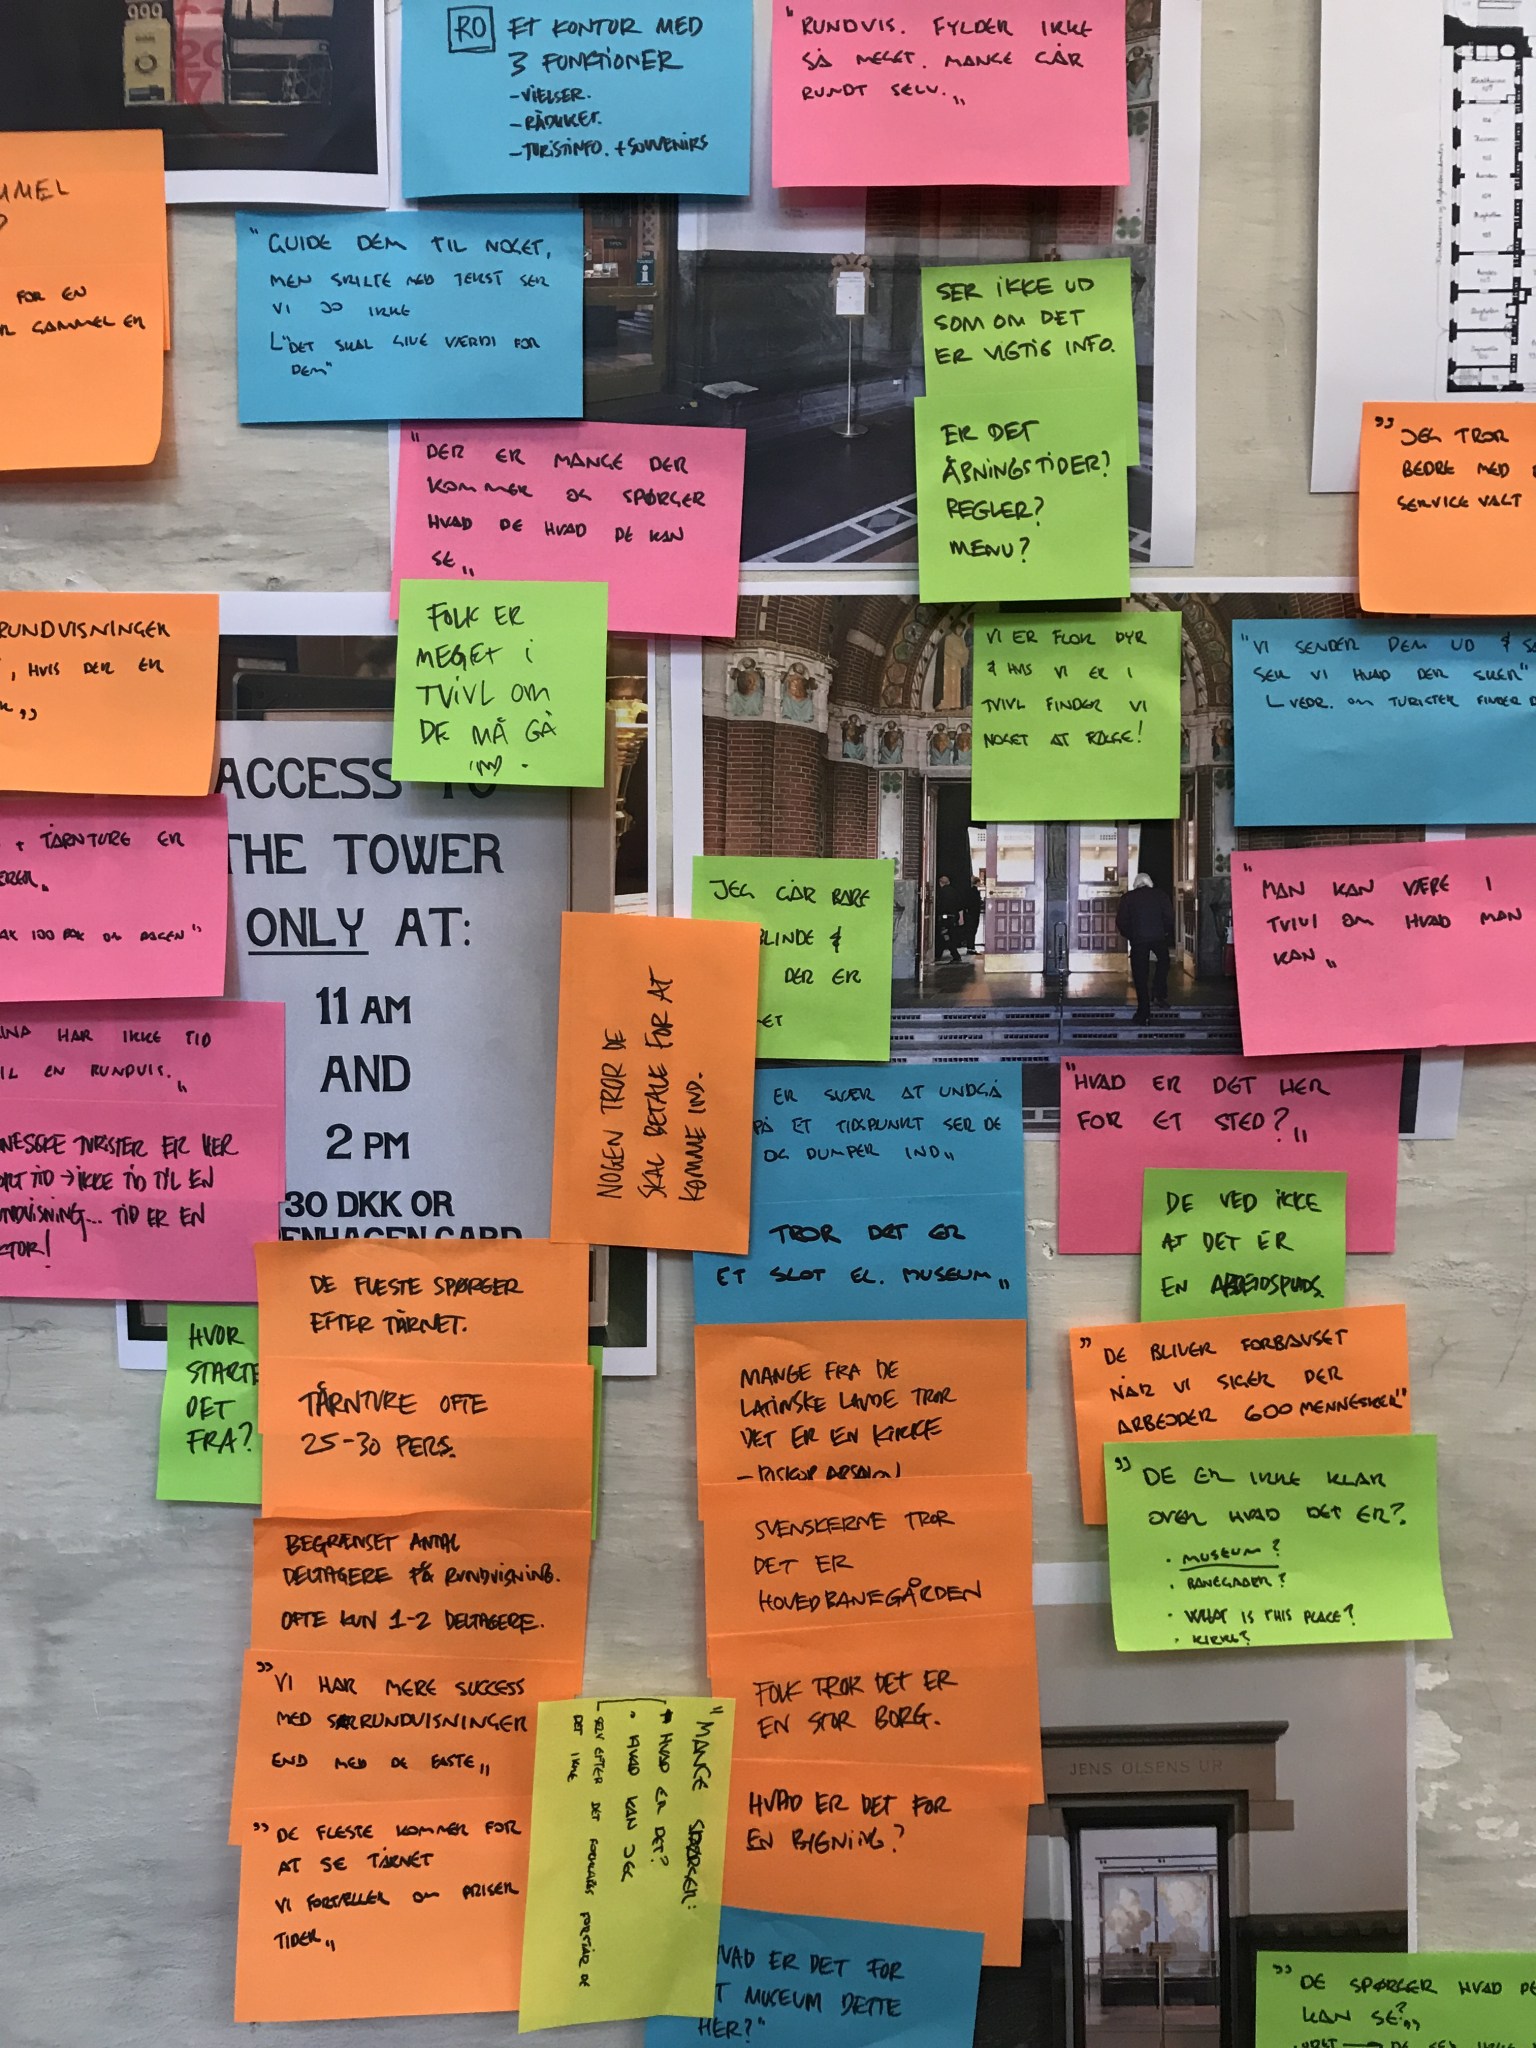 RO
ET KONTOR MED
3 FUNKTIONER
-VIELSER.
-RÅDHKET.
-TURISTINFO. + SOUVENIRS
"RUNDVIS. FYLDER IKKE
SÅ MEGET. MANGE GÅR
RUNDT SELV."
"GUIDE DEM TIL NOGET,
MEN SKILTE MED TEKST SER
VI JO IKKE
L "DET SKAL GIVE VÆRDI FOR
DEM"
MMEL
FOR EN
GAMMEL ER
SER IKKE UD
SOM OM DET
ER VIGTIG INFO.
ER DET
ÅBNINGSTIDER?
REGLER?
MENU?
"DER ER MANGE DER
KOMMER OG SPØRGER
HVAD DE HVAD DE KAN
SE"
"JEG TROR
BEDRE MED
SERVICE VALT
FOLK ER
MEGET I
TVIVL OM
DE MÅ GÅ
IND.
RUNDVISNINGER
, HVIS DER ER
VI ER FLOK DYR
& HVIS VI ER I
TVIVL FINDER VI
NOGET AT FØLGE!
"VI SENDER DEM UD & SÅ
SER VI HVAD DER SKER"
L VEDR. OM TURISTER FINDER
ACCESS TO
THE TOWER
ONLY AT:
11 AM
AND
2 PM
30 DKK OR
ENHAGEN CARD
+ TÅRNTURE ER
100 PAK OM DAGEN"
HAR IKKE TID
TIL EN RUNDVIS."
NESISKE TURISTER ER HER
KORT TID → IKKE TID TIL EN
RUNDVISNING... TID ER EN
KTOR!
JEG GÅR BARE
BLINDE &
DER ER
ET
NOGEN TROR DE
SKAL BETALE FOR AT
KOMME IND.
"MAN KAN VÆRE I
TVIVL OM HVAD MAN
KAN"
ER SVÆR AT UNDGÅ
PÅ ET TIDSPUNKT SER DE
OG DUMPER IND"
TROR DET ER
ET SLOT EL. MUSEUM"
"HVAD ER DET HER
FOR ET STED?"
DE VED IKKE
AT DET ER
EN ARBEJDSPLADS.
"DE BLIVER FORBAVSET
NÅR VI SIGER DER
ARBEJDER 600 MENNESKER"
"DE ER IKKE KLAR
OVER HVAD DET ER?
· MUSEUM?
· BANEGÅRD?
· WHAT IS THIS PLACE?
· KIRKE?
DE FLESTE SPØRGER
EFTER TÅRNET.
HVOR
STARTE
DET
FRA?
TÅRNTURE OFTE
25-30 PERS.
BEGRÆNSET ANTAL
DELTAGERE PÅ RUNDVISNING.
OFTE KUN 1-2 DELTAGERE.
"VI HAR MERE SUCCESS
MED SÆRRUNDVISNINGER
END MED DE FASTE"
"DE FLESTE KOMMER FOR
AT SE TÅRNET
VI FORTÆLLER OM PRISER
TIDER"
MANGE FRA DE
LATINSKE LANDE TROR
DET ER EN KIRKE
- BISKOP ABSALON!
SVENSKERNE TROR
DET ER
HOVEDBANEGÅRDEN
FOLK TROR DET ER
EN STOR BORG.
HVAD ER DET FOR
EN BYGNING?
"MANGE SPØRGER:
• HVAD ER DET?
• HVAD KAN JEG
SELV EFTER DET FORKLARES FORSTÅR DE
DET IKKE
HVAD ER DET FOR
ET MUSEUM DETTE
HER?"
JENS OLSENS UR
"DE SPØRGER HVAD DE
KAN SE?"